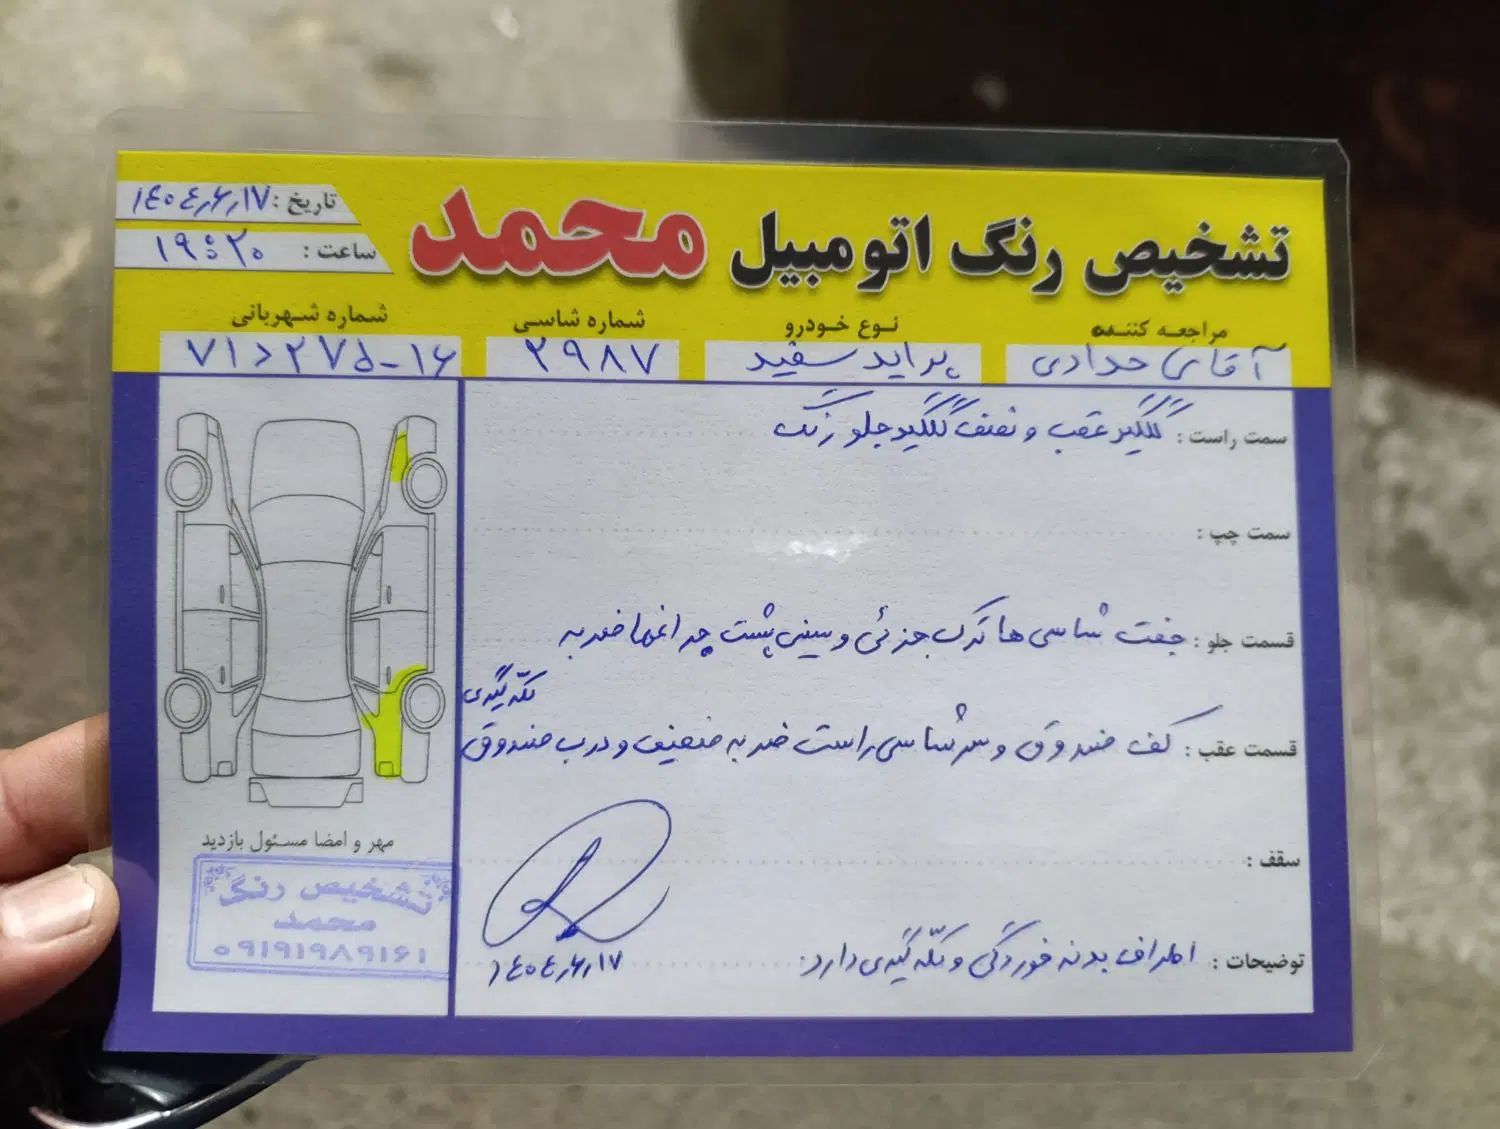 تشخیص رنگ اتومبیل محمد
تاریخ : ۱۴۰۴٫۶٫۱۷
ساعت : ۱۹:۲۰
مراجعه کننده
آقای حدادی
نوع خودرو
پراید سفید
شماره شاسی
۲۹۸۷
شماره شهربانی
۷۱د۲۷۵-۱۶
سمت راست : گلگیر عقب و نصف گلگیر جلو رنگ
سمت چپ :
قسمت جلو : جفت شاسی ها ترک جزئی و سینی پشت چراغها ضربه
قسمت عقب : کف صندوق و سرشاسی راست ضربه ضعیف و درب صندوق لکه گیری
سقف :
توضیحات : اطراف بدنه خوردگی و لکه گیری دارد.
۱۴۰۴٫۶٫۱۷
مهر و امضا مسئول بازدید
تشخیص رنگ
محمد
۰۹۱۹۱۹۸۹۱۶۱